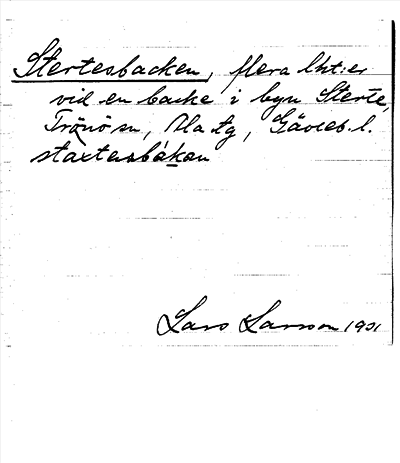 Stertesbacken, flera lht:er
vid en backe i byn Sterte,
Trönö sn, Ala tg, Gävleb. l.
stærtesbákan
Lars Larsson 1901